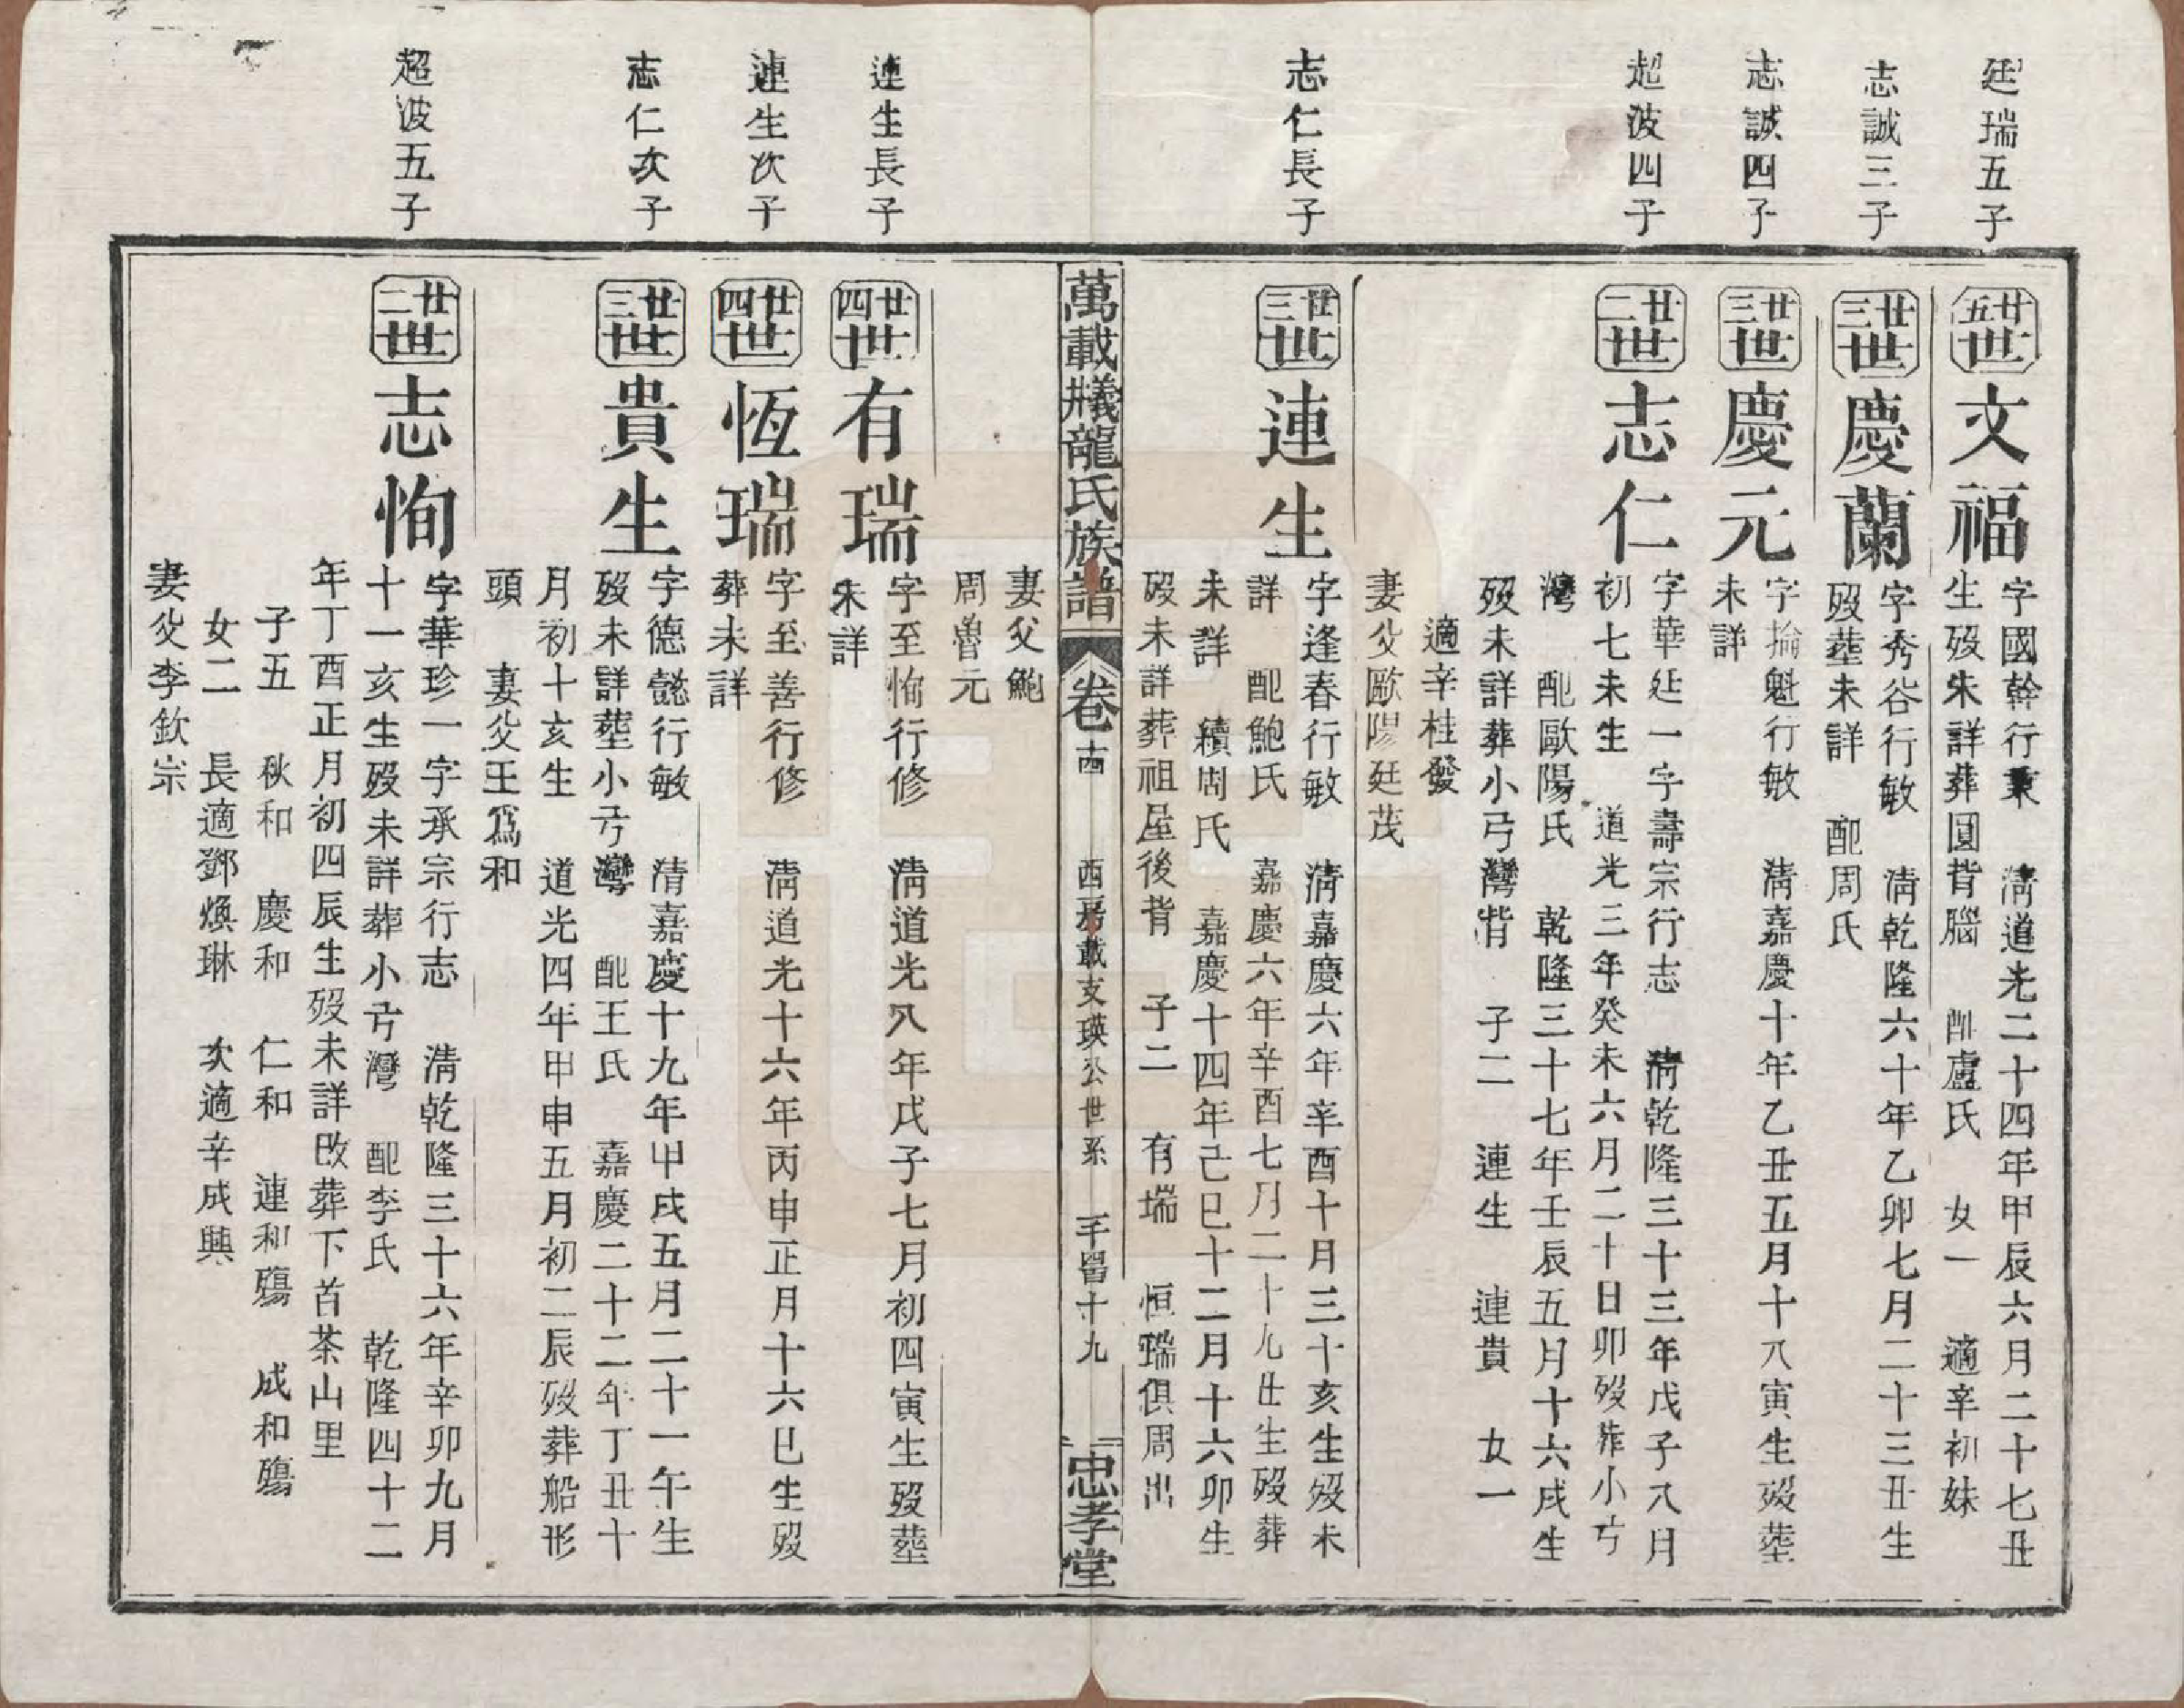 廷瑞五子
廿五世
文福
字國幹行秉 清道光二十四年甲辰六月二十七丑
生歿未詳葬圓背腦 配盧氏 女一 適辛初妹
志誠三子
廿三世
慶蘭
字秀谷行敏 清乾隆六十年乙卯七月二十三丑生
歿塟未詳 配周氏
志誠四子
廿三世
慶元
字掄魁行敏 清嘉慶十年乙丑五月十八寅生歿塟
未詳
超波四子
廿二世
志仁
字華廷一字壽宗行志 清乾隆三十三年戊子八月
初七未生 道光三年癸未六月二十日卯歿葬小弓
灣 配歐陽氏 乾隆三十七年壬辰五月十六戌生
歿未詳葬小弓灣背 子二 連生 連貴 女一
適辛桂發
妻父歐陽廷茂
志仁長子
廿三世
連生
字逢春行敏 清嘉慶六年辛酉十月三十亥生歿未
詳 配鮑氏 嘉慶六年辛酉七月二十九丑生歿葬
未詳 續周氏 嘉慶十四年己巳十二月十六卯生
歿未詳葬祖屋後背 子二 有瑞 恒瑞俱周出
妻父鮑
周魯元
萬載㸁龍氏族譜 卷十四 西房載支瑛公世系 平畱十九 忠孝堂
連生長子
廿四世
有瑞
字至恂行修 清道光八年戊子七月初四寅生歿塟
未詳
連生次子
廿四世
恆瑞
字至善行修 清道光十六年丙申正月十六巳生歿
葬未詳
志仁次子
廿三世
貴生
字德懿行敏 清嘉慶十九年甲戌五月二十一午生
歿未詳塟小弓灣 配王氏 嘉慶二十二年丁丑十
月初十亥生 道光四年甲申五月初二辰歿葬船形
頭 妻父王爲和
超波五子
廿二世
志恂
字華珍一字承宗行志 清乾隆三十六年辛卯九月
十一亥生歿未詳葬小弓灣 配李氏 乾隆四十二
年丁酉正月初四辰生歿未詳改葬下首茶山里
子五 秋和 慶和 仁和 連和殤 成和殤
女二 長適鄧煥琳 次適辛成興
妻父李欽宗